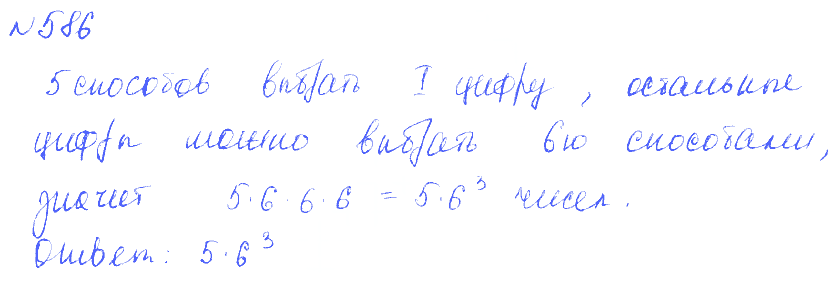 №586
5 способов выбрать I цифру, остальные
цифры можно выбрать 6ю способами,
значит 5·6·6·6 = 5·6³ чисел.
Ответ: 5·6³